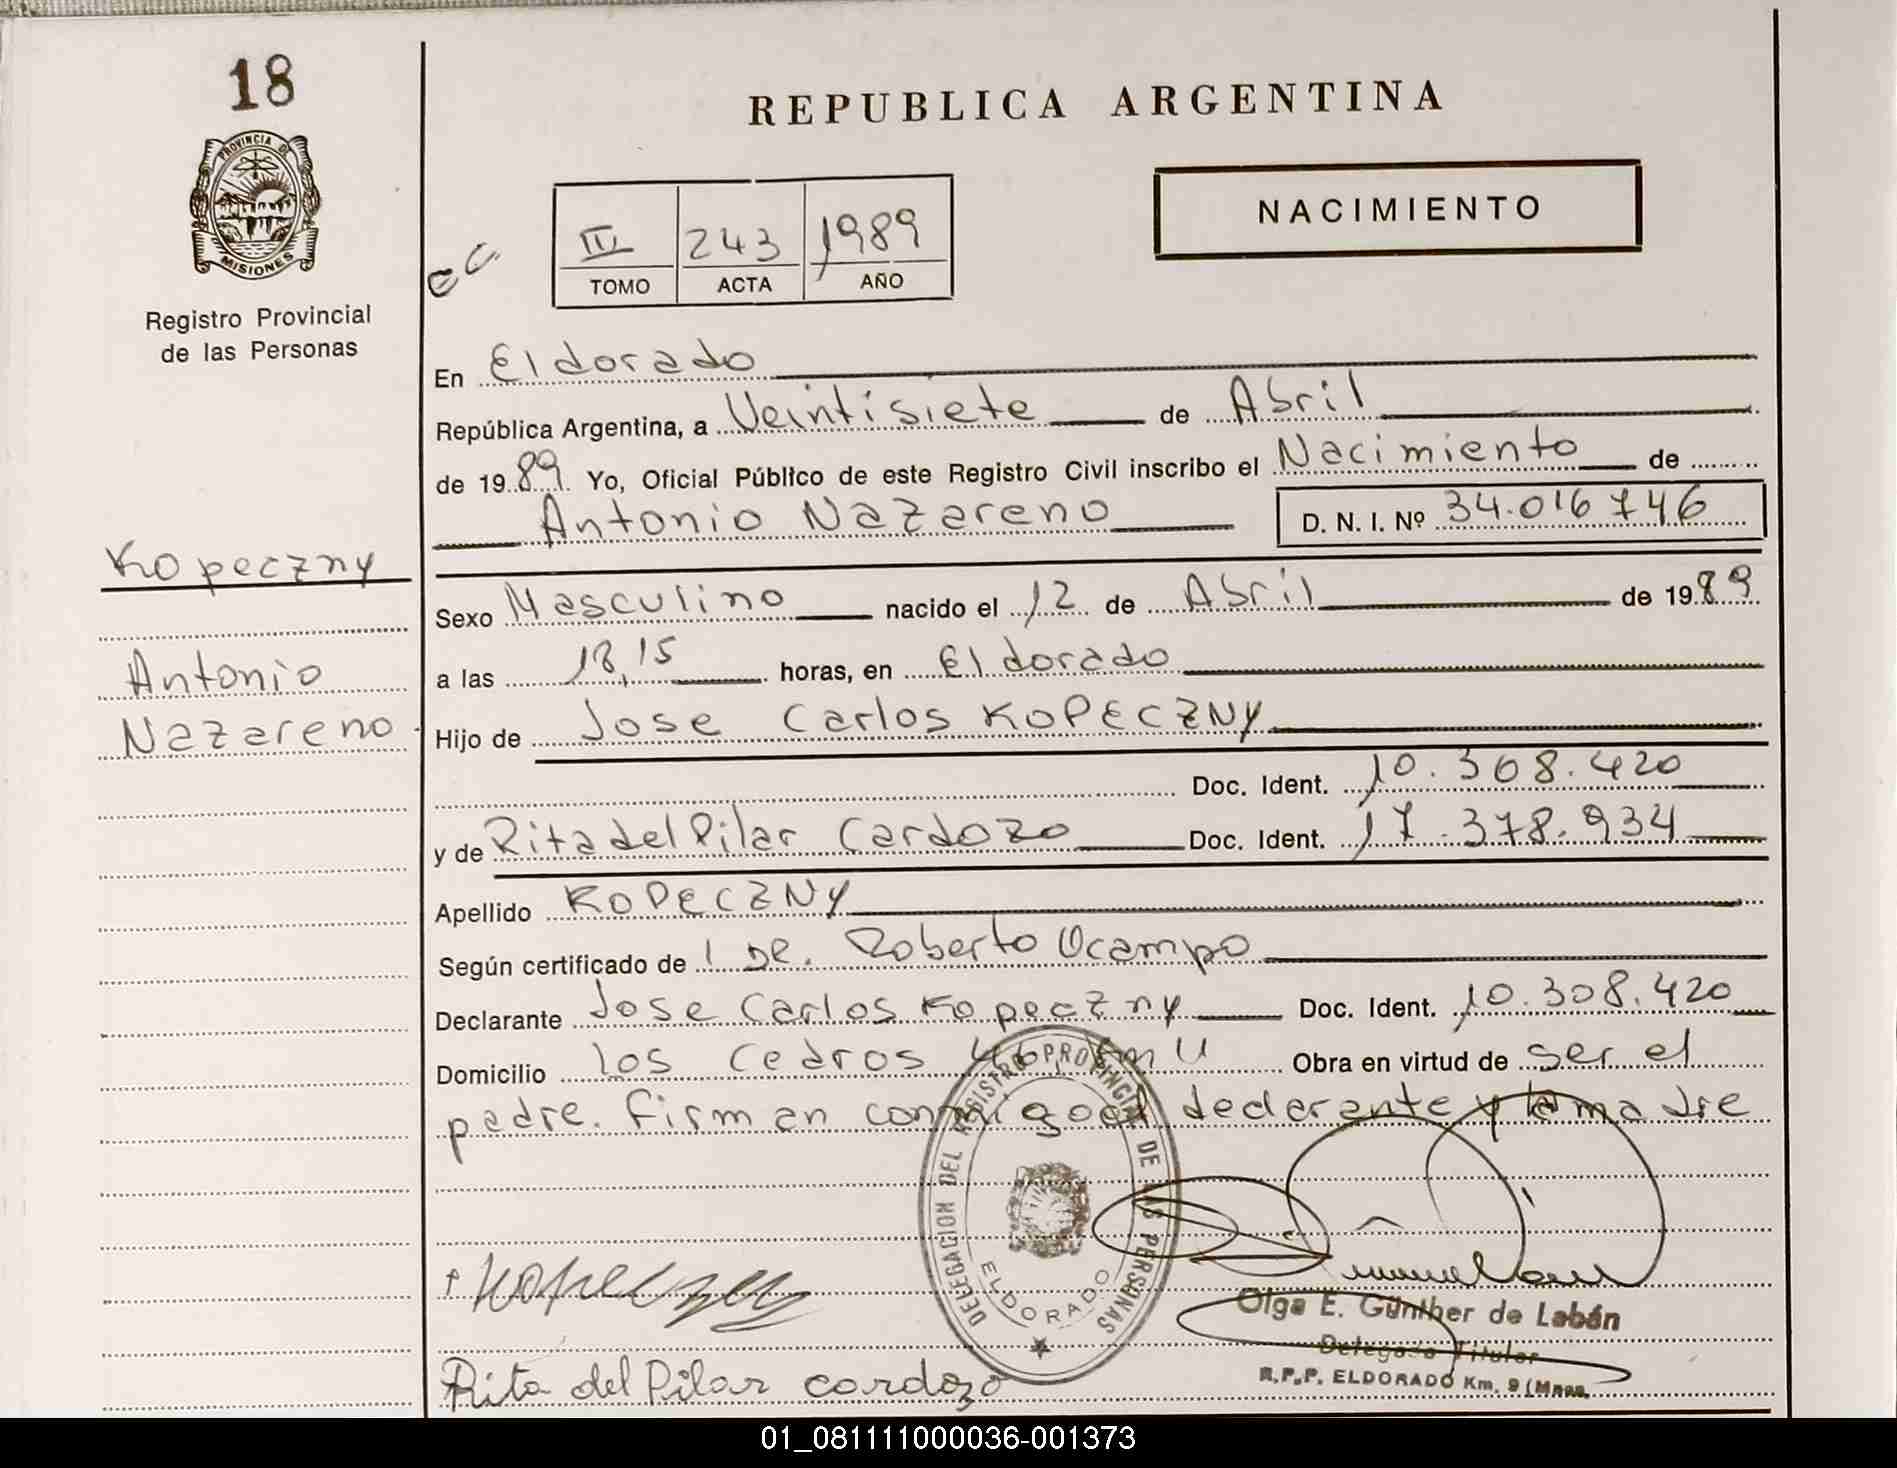 18
PROVINCIA DE
MISIONES
Registro Provincial
de las Personas
REPUBLICA ARGENTINA
NACIMIENTO
III 243 1989
TOMO ACTA AÑO
En Eldorado
República Argentina, a Veintisiete de Abril
de 1989 Yo, Oficial Público de este Registro Civil inscribo el Nacimiento de
Antonio Nazareno D. N. I. Nº 34.016746
Kopeczny
Antonio
Nazareno
Sexo Masculino nacido el 12 de Abril de 1989
a las 18,15 horas, en Eldorado
Hijo de Jose Carlos KOPECZNY
Doc. Ident. 10.308.420
y de Rita del Pilar Cardozo Doc. Ident. 17.378.934
Apellido KOPECZNY
Según certificado de 1 DR. Roberto Ocampo
Declarante Jose Carlos Kopeczny Doc. Ident. 10.308.420
Domicilio los cedros Obra en virtud de ser el
padre. Firman conmigo el declarante y la madre
DELEGACION DEL REGISTRO PROVINCIAL DE LAS PERSONAS
ELDORADO
Kopeczny
Olga E. Günther de Labán
Delegada Titular
R.P.P. ELDORADO Km. 9 (Mnes.
Rita del Pilar cardozo
01_081111000036-001373